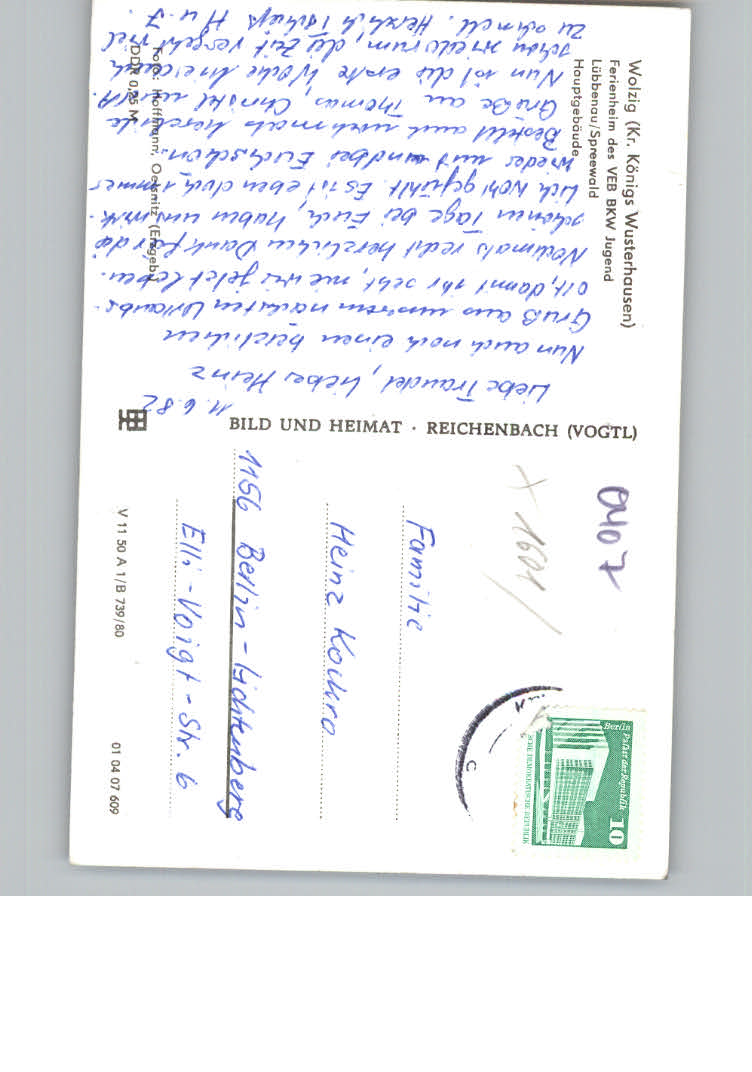 Wolzig (Kr. Königs Wusterhausen)
Ferienheim des VEB BKW Jugend
Lübbenau/Spreewald
Hauptgebäude
11.6.82
Liebe Traudel, lieber Heinz
Nun auch noch einen herzlichen
Gruß aus unserem nächsten Urlaubs-
ort, damit ihr seht, wie wir jetzt leben.
Nochmals recht herzlichen Dank für die
schönen Tage bei Euch, haben uns wirk-
lich wohl gefühlt. Es ist eben doch immer
wieder mit und bei Euch schön.
Bestellt auch nochmals herzliche
Grüße an Thomas, Christel und A.
Nun ist die erste Woche hier auch
schon wieder um, die Zeit vergeht viel
zu schnell. Herzlich H u. J.
Foto: Hoffmann, Oelsnitz (Erzgeb.)
DDR 0,25 M
BILD UND HEIMAT · REICHENBACH (VOGTL)
V 11 50 A 1/B 739/80
01 04 07 609
0407
X 1601/
Berlin
Palast der Republik
10
DEMOKRATISCHE REPUBLIK
Familie
Heinz Kochro
1156 Berlin-Lichtenberg
Elli-Voigt-Str. 6